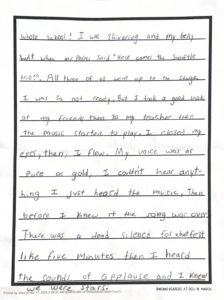 whole school! I was shivering and my belly
hurt when Mr Peters said "Here comes the
trio!". All three of us went up to the stage.
I was so not ready, But I took a good look
at my friends then my teacher then
the music started to play. I closed my
eyes, then I flew. My voice was as
pure as gold, I couldn't hear anyt-
hing I just heard the music, Then
before I knew it the song was over.
There was a dead silence for what felt
like five minutes then I heard
the sounds of applause and I knew
we were stars.